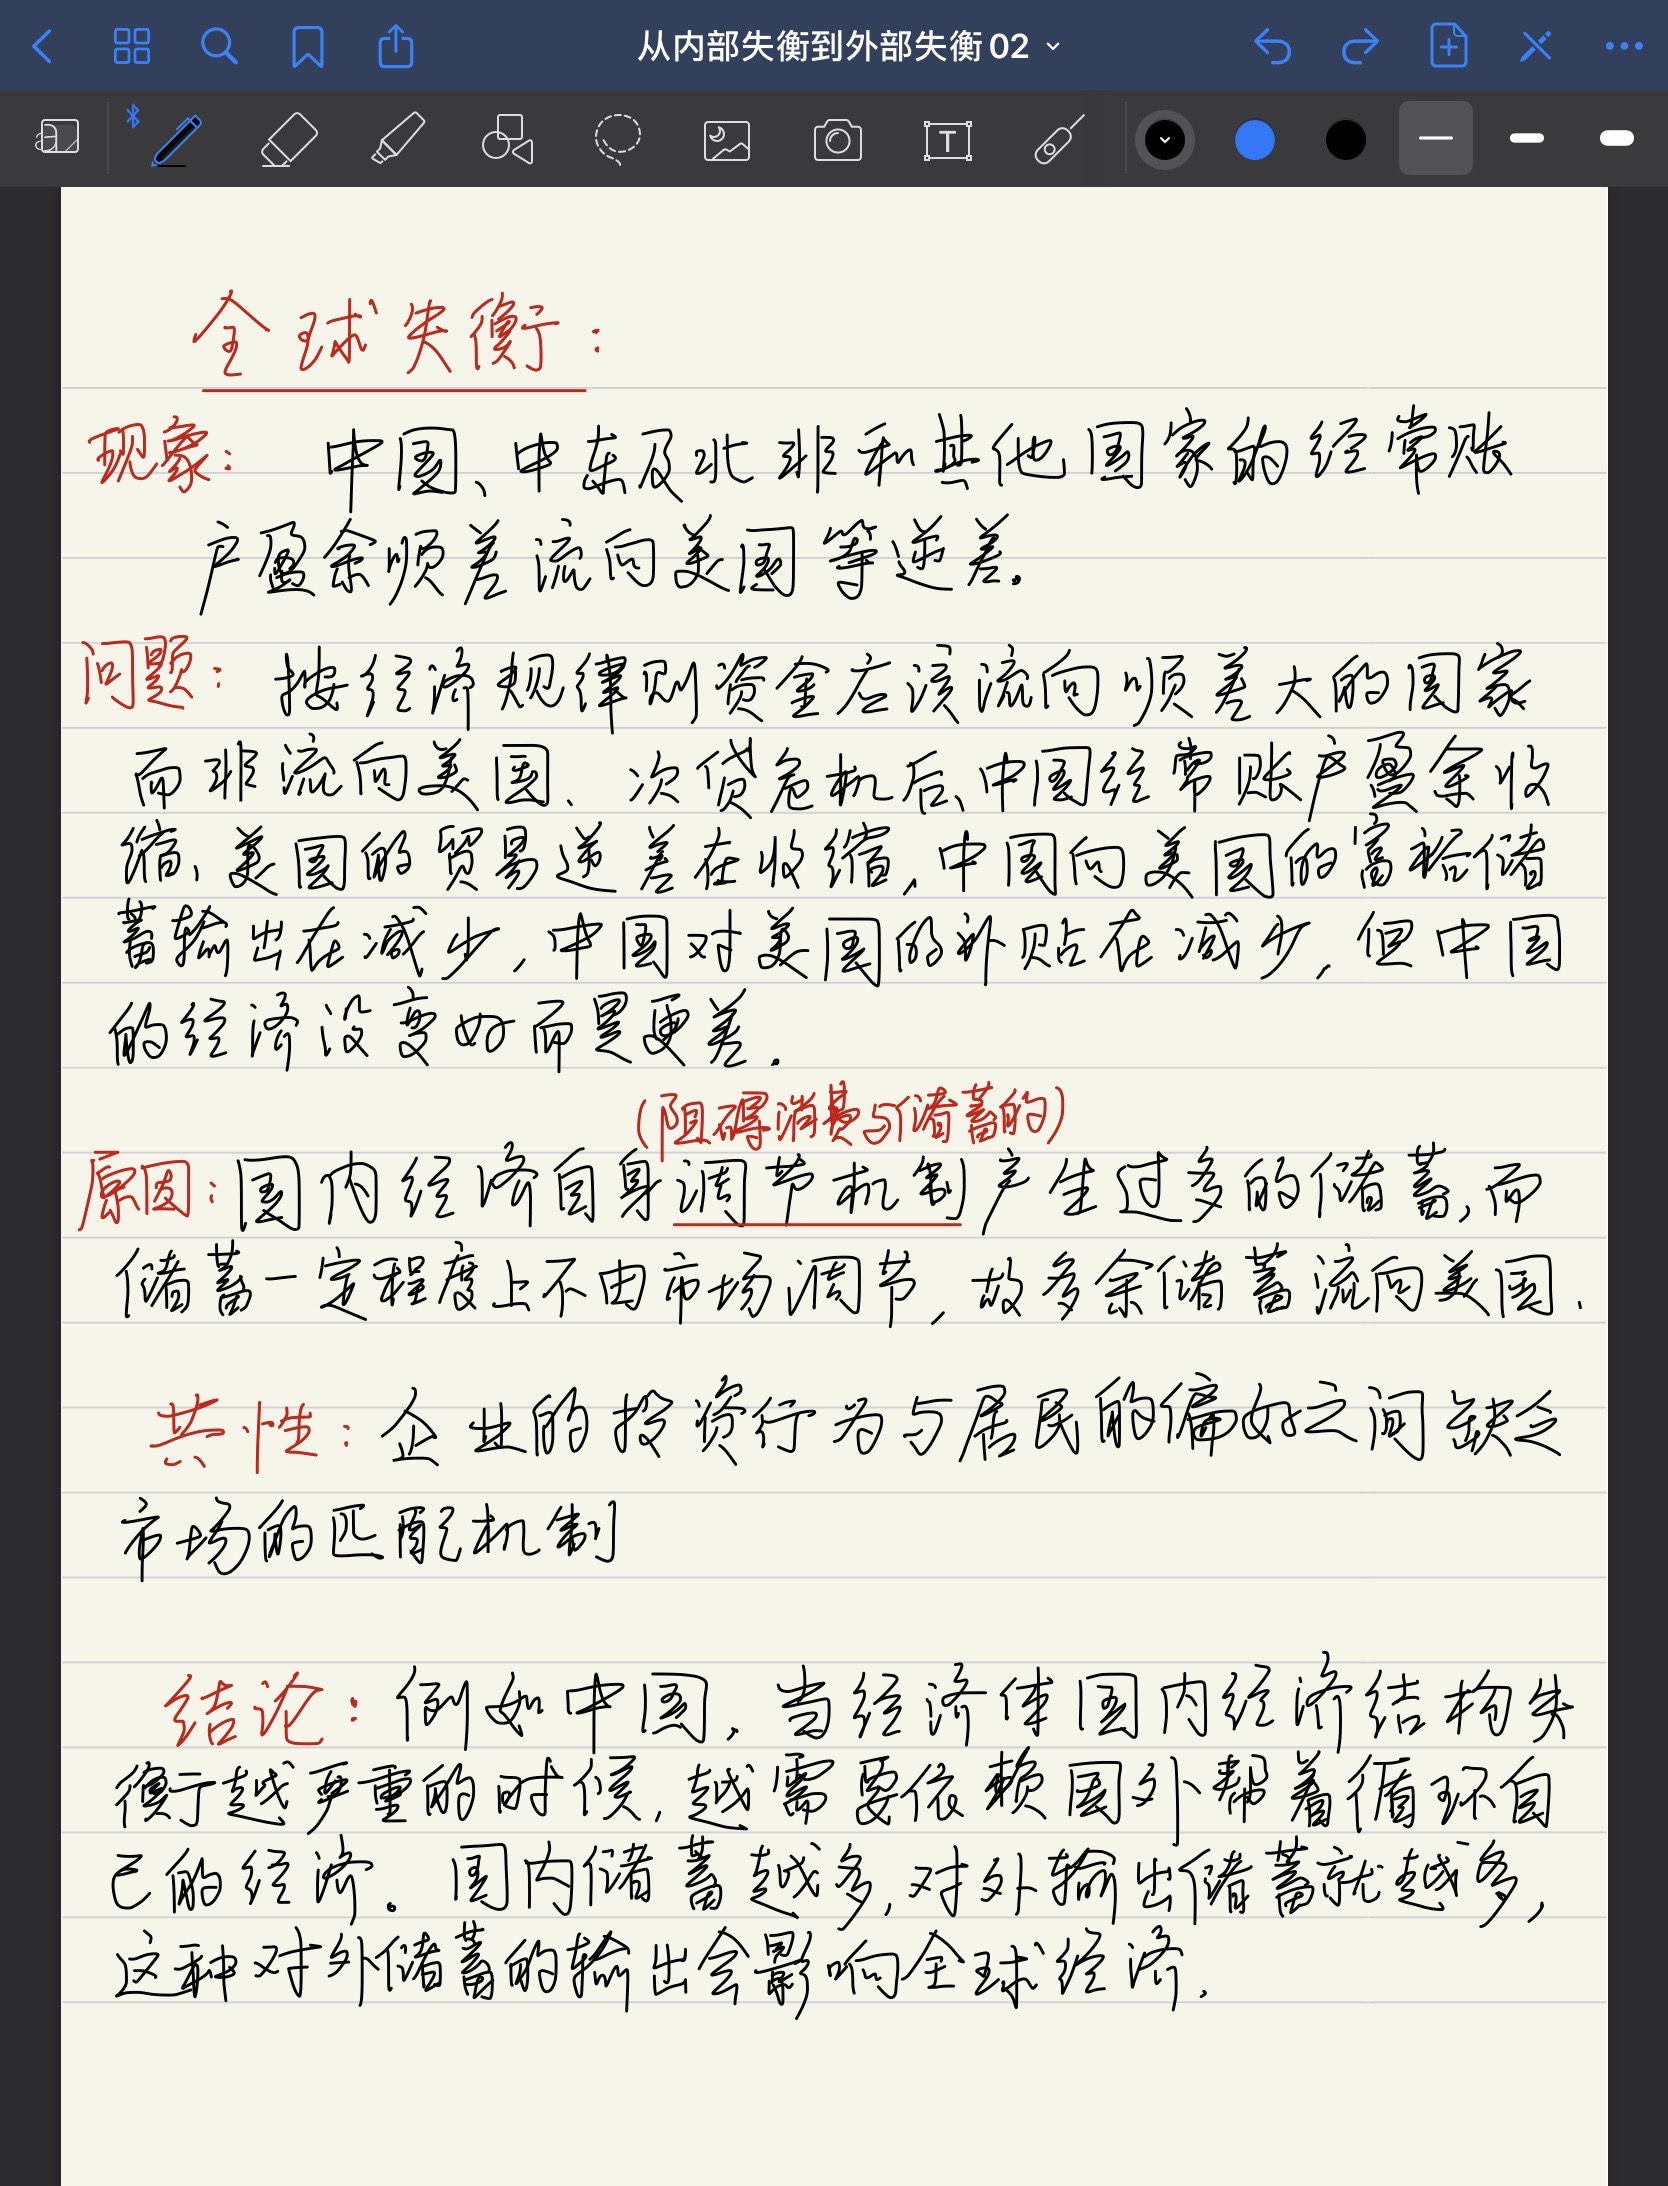 从内部失衡到外部失衡 02
全球失衡：
现象：中国、中东及北非和其他国家的经常账
户盈余顺差流向美国等逆差。
问题：按经济规律则资金应该流向顺差大的国家
而非流向美国、次贷危机后、中国经常账户盈余收
缩、美国的贸易逆差在收缩，中国向美国的富裕储
蓄输出在减少，中国对美国的补贴在减少，但中国
的经济没变好而是更差.
(阻碍消费与储蓄的)
原因：国内经济自身调节机制产生过多的储蓄，而
储蓄一定程度上不由市场调节，故多余储蓄流向美国.
共性：企业的投资行为与居民的偏好之间缺乏
市场的匹配机制
结论：例如中国，当经济体国内经济结构失
衡越严重的时候，越需要依赖国外帮着循环自
己的经济。国内储蓄越多，对外输出储蓄就越多，
这种对外储蓄的输出会影响全球经济.